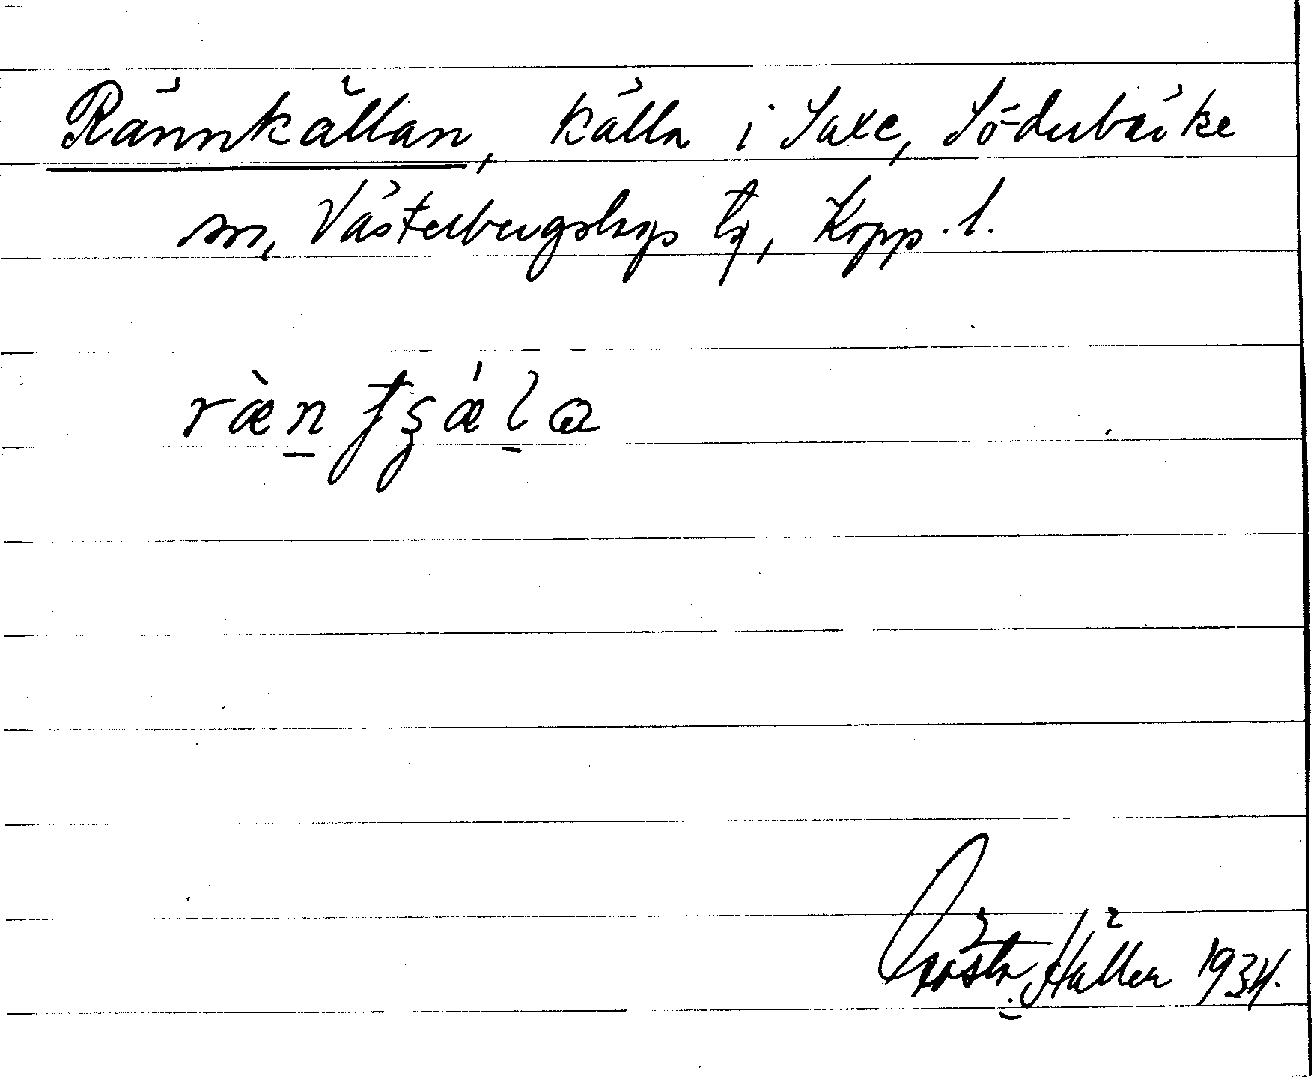 Rännkällan, källa i Saxe, Söderbärke
sn, Västerbergslags tg, Kopp. l.
ràn̲ tʂǽl̲a
Gösta Häller 1934.